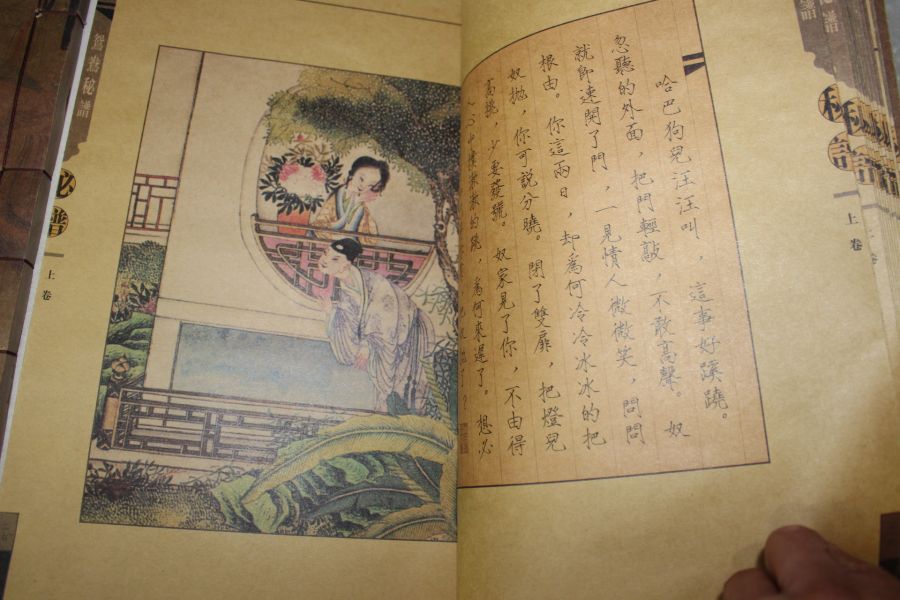 哈巴狗兒汪汪叫，這事好蹊蹺。
忽聽的外面，把門輕敲，不敢高聲。奴
就即速開了門，一見情人微微笑，問問
根由。你這兩日，却為何冷冷冰冰的把
奴拋，你可說分曉。閉了雙扉，把燈兒
高挑，少要發諕。奴家見了你，不由得
的跳，為何來遲了。想必
了？
秘譜
上卷
鴛鴦秘譜
秘譜
上卷